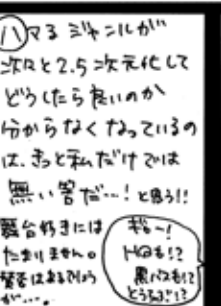 ハマるジャンルが
次々と2.5次元化して
どうしたら良いのか
分からなくなっているの
は、きっと私だけでは
無い筈だ…!と思う!!
舞台好きには
たまりません。
賛否はあるでしょう
が…。
ギャー!
H●も!?
黒バスも!?
とうらぶ!?